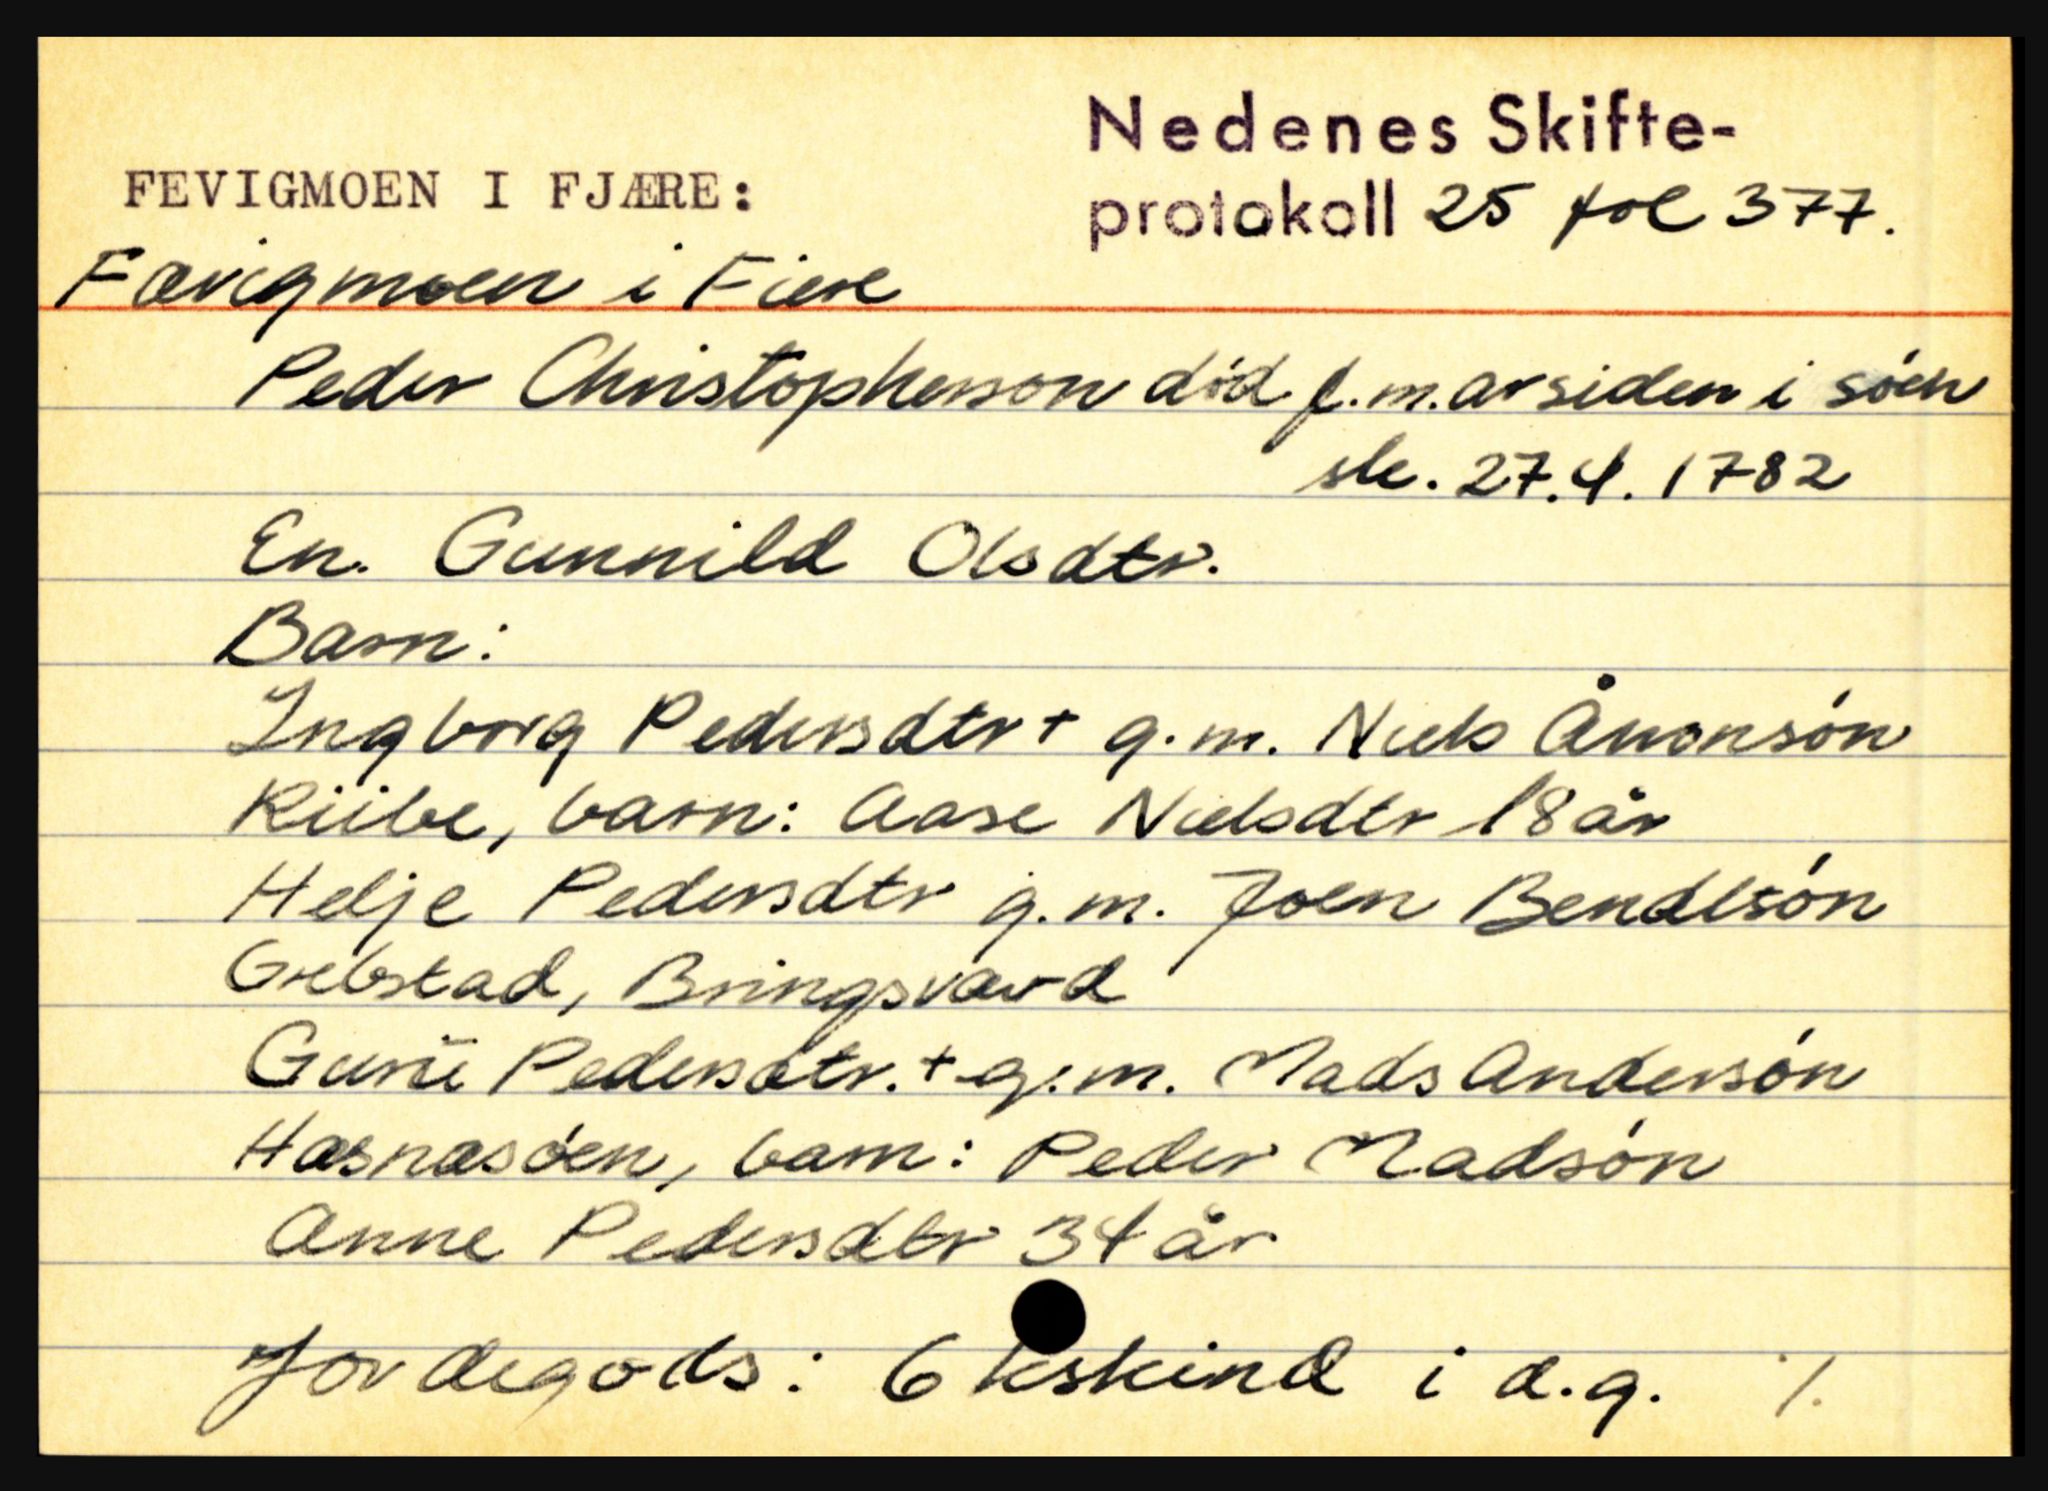 Nedenes Skifte-
FEVIGMOEN I FJÆRE:
protokoll 25 fol 377.
Fævigmoen i Fiere
Peder Christophersson död f.m. arsiden i söen
sle. 27.4. 1782
En. Gunnild Olsdtr.
Barn:
Ingborg Pedersdtr + g.m. Niels Ånonsön
Riibe, barn: Aase Nielsdtr 18 år
Helje Pedersdtr g.m. Joen Bendtsön
Grebstad, Bringsværd
Guri Pedersdtr. + g.m. Mads Andersön
Hasnæsöen, barn: Peder Madsön
Anne Pedersdtr 34 år
Jordegods: 6 kskind i d.g. /.